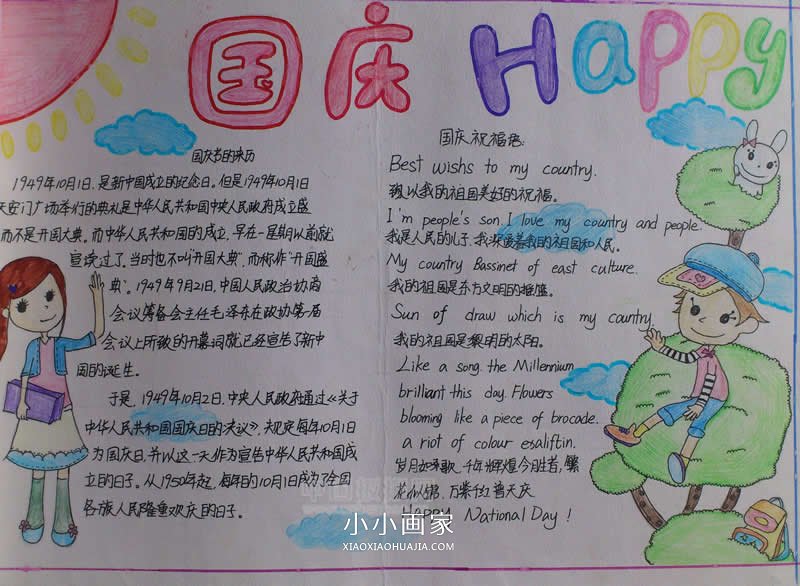 国庆 Happy
国庆节的来历
1949年10月1日,是新中国成立的纪念日。但是1949年10月1日
天安门广场举行的典礼是中华人民共和国中央人民政府成立盛
而不是开国大典。而中华人民共和国的成立,早在一星期以前就
宣读过了。当时也不叫"开国大典",而称作"开国盛
典"。1949年9月21日,中国人民政治协商
会议筹备会主任毛泽东在政协第一届
会议上所致的开幕词就已经宣告了新中
国的诞生。
于是,1949年10月2日,中央人民政府通过《关于
中华人民共和国国庆日的决议》,规定每年10月1日
为国庆日,并以这一天作为宣告中华人民共和国成
立的日子。从1950年起,每年的10月1日成为了全国
各族人民隆重欢庆的日子。
国庆祝福语:
Best wishs to my country.
致以我的祖国美好的祝福。
I'm people's son, I love my country and people.
我是人民的儿子,我深爱着我的祖国和人民。
My country Bassinet of east culture.
我的祖国是东方文明的摇篮。
Sun of draw which is my country.
我的祖国是黎明的太阳。
Like a song the Millennium
brilliant this day. Flowers
blooming like a piece of brocade.
a riot of colour esaliftin.
岁月如歌,千年辉煌今胜昔,繁
花似锦,万紫千红普天庆
Happy National Day!
小小画家
XIAOXIAOHUAJIA.COM